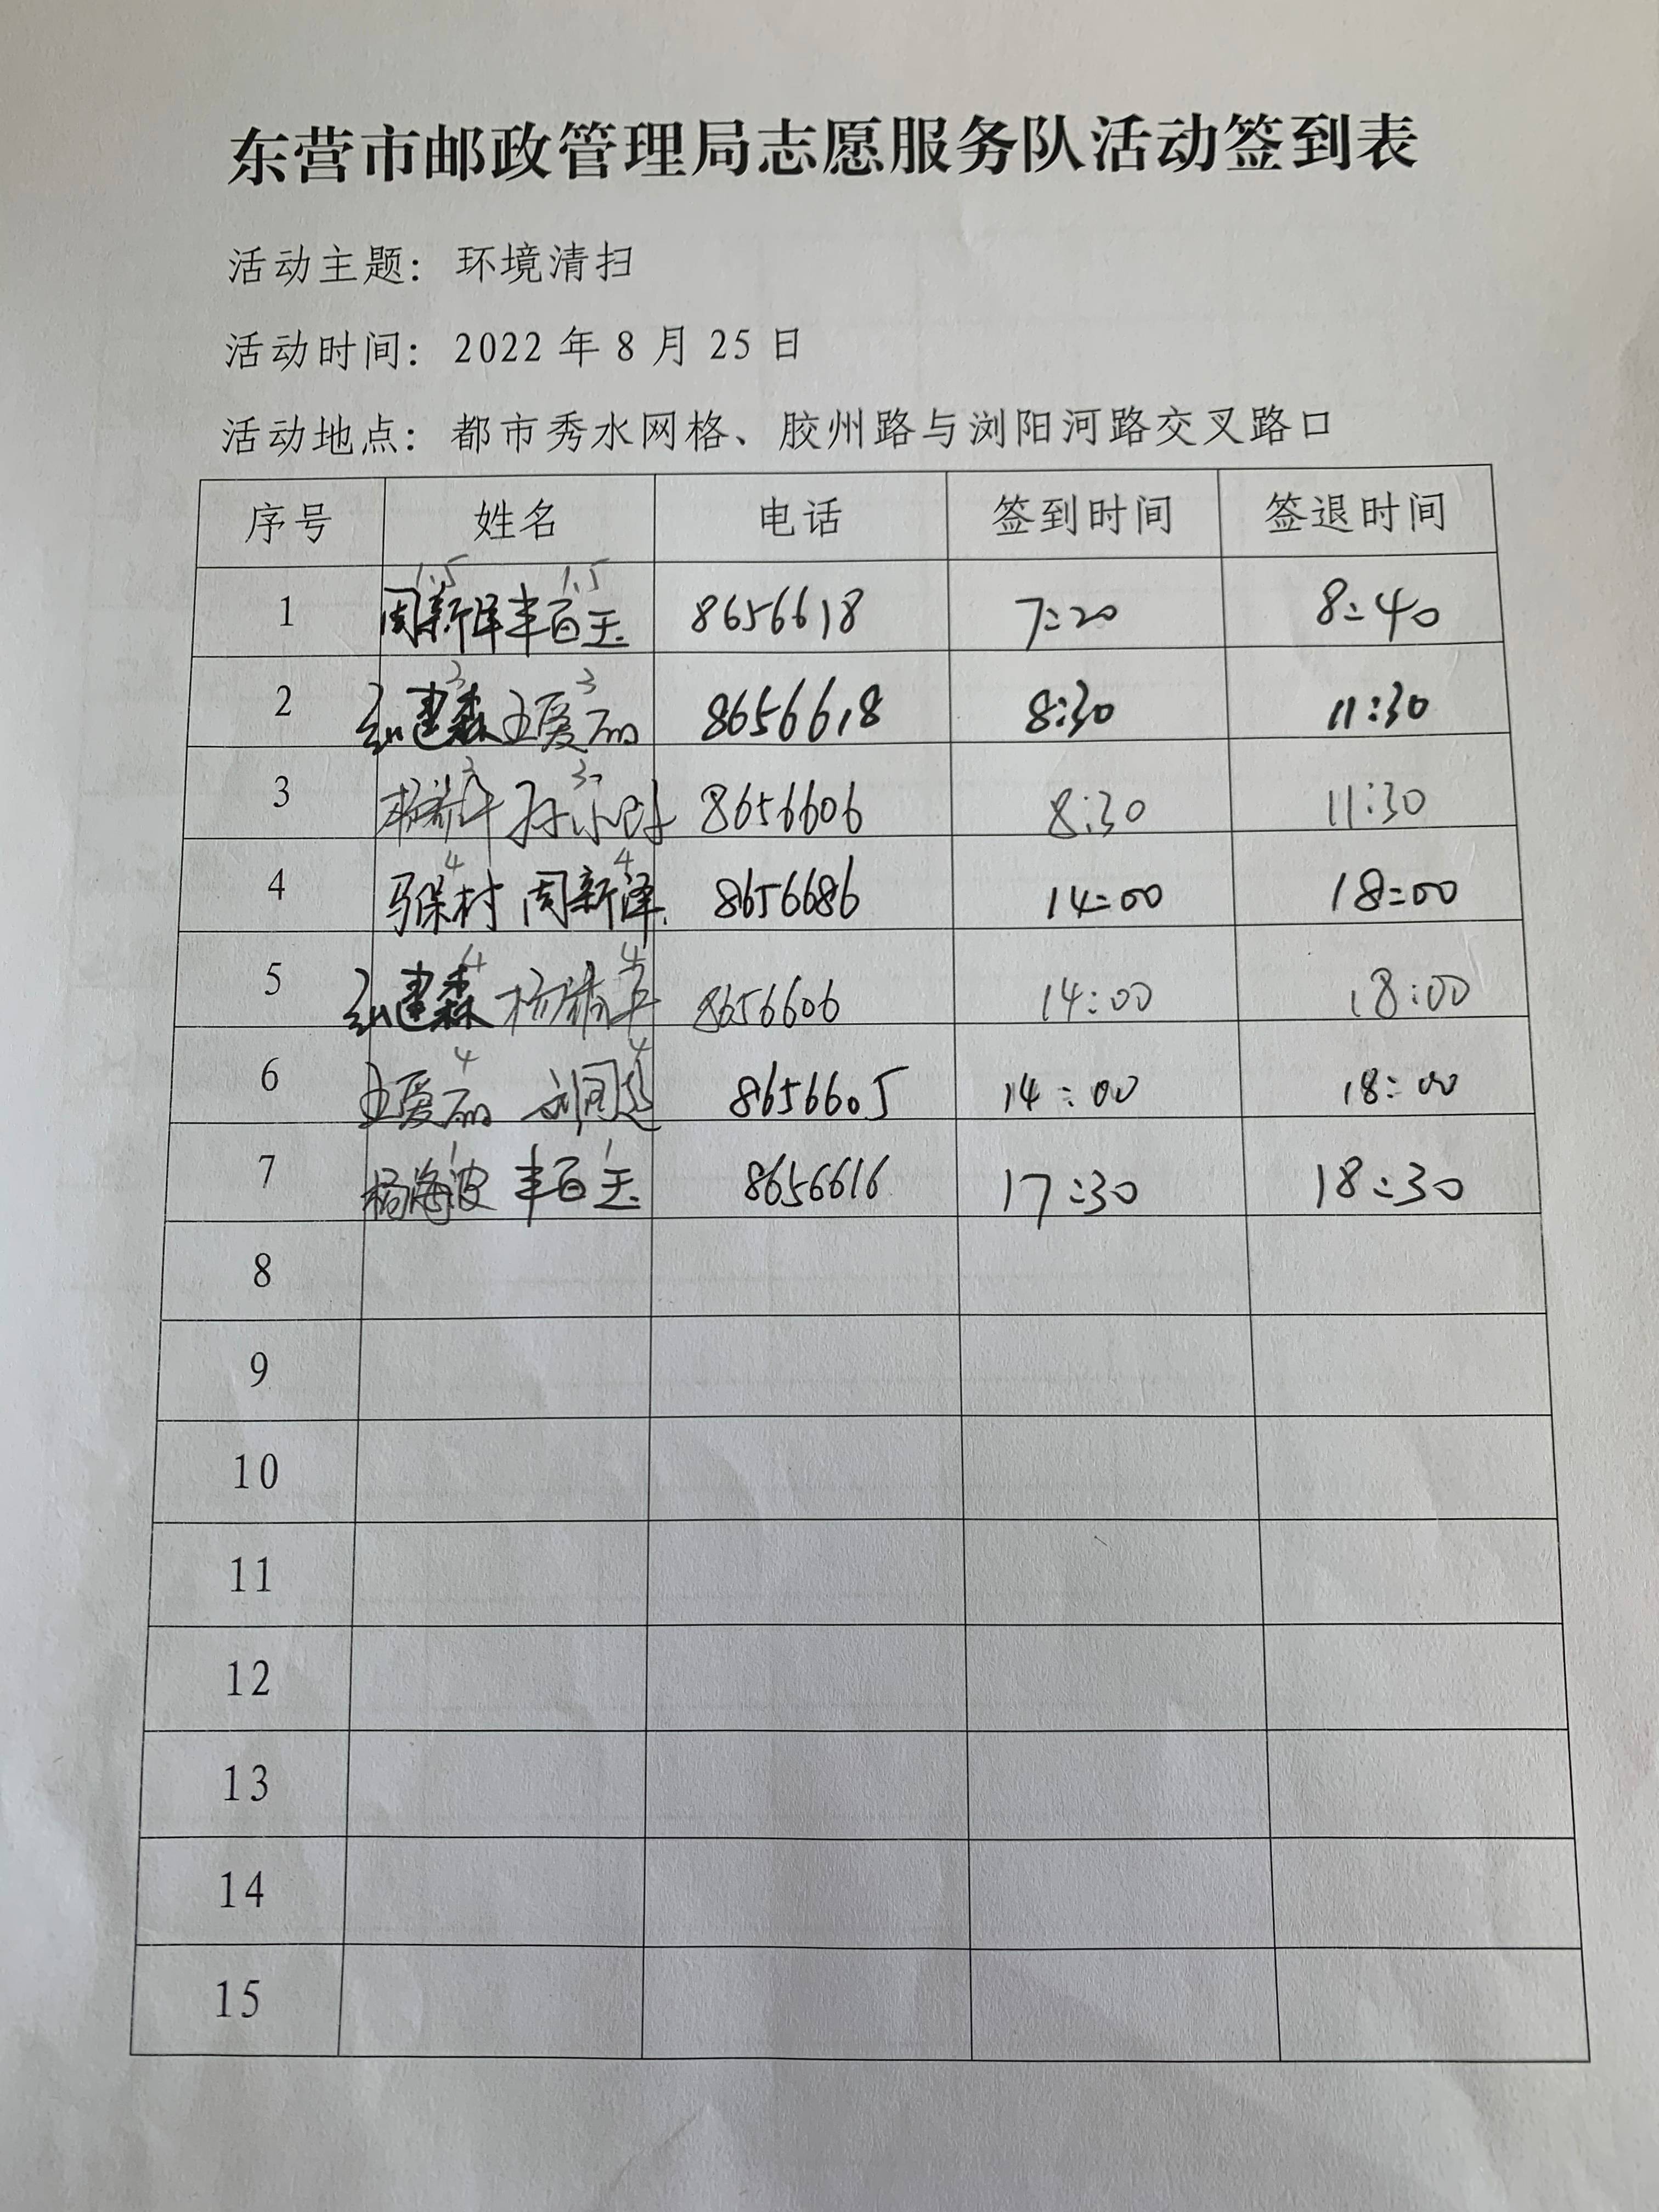 东营市邮政管理局志愿服务队活动签到表
活动主题：环境清扫
活动时间：2022 年 8 月 25 日
活动地点：都市秀水网格、胶州路与浏阳河路交叉路口
序号 姓名 电话 签到时间 签退时间
1.5 1.5
1 周新泽 丰百玉 8656618 7:20 8:40
3 3
2 建森 王爱丽 8656618 8:30 11:30
3 3
3 杨 孙 8656606 8:30 11:30
4 4
4 马保村 周新泽 8656686 14:00 18:00
4 4
5 建森 杨 8656606 14:00 18:00
4 4
6 王爱丽 8656605 14:00 18:00
1 1
7 杨海波 丰百玉 8656616 17:30 18:30
8
9
10
11
12
13
14
15